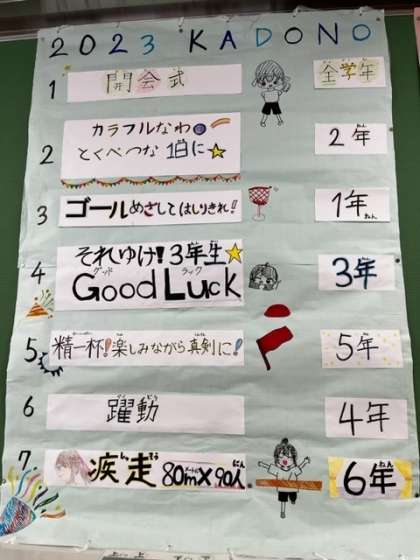 2023 KADONO
1 開会式 全学年
2 カラフルなわ
とくべつな 1日に 2年
3 ゴールめざしてはしりきれ! 1年
ねん
4 それゆけ!3年生
グッド ラック
Good Luck 3年
5 精一杯!楽しみながら真剣に! 5年
6 躍動 4年
7 疾走 80m×90人 6年